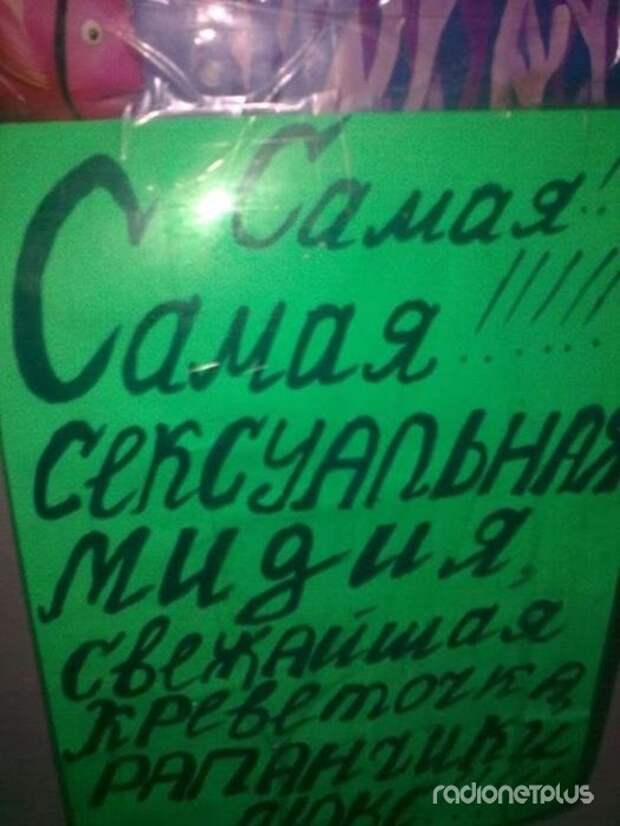 Самая!!
Самая!!!!!
СЕКСУАЛЬНАЯ
мидия,
свежайшая
креветочка
РАПАНЧИКИ
люкс
radionetplus